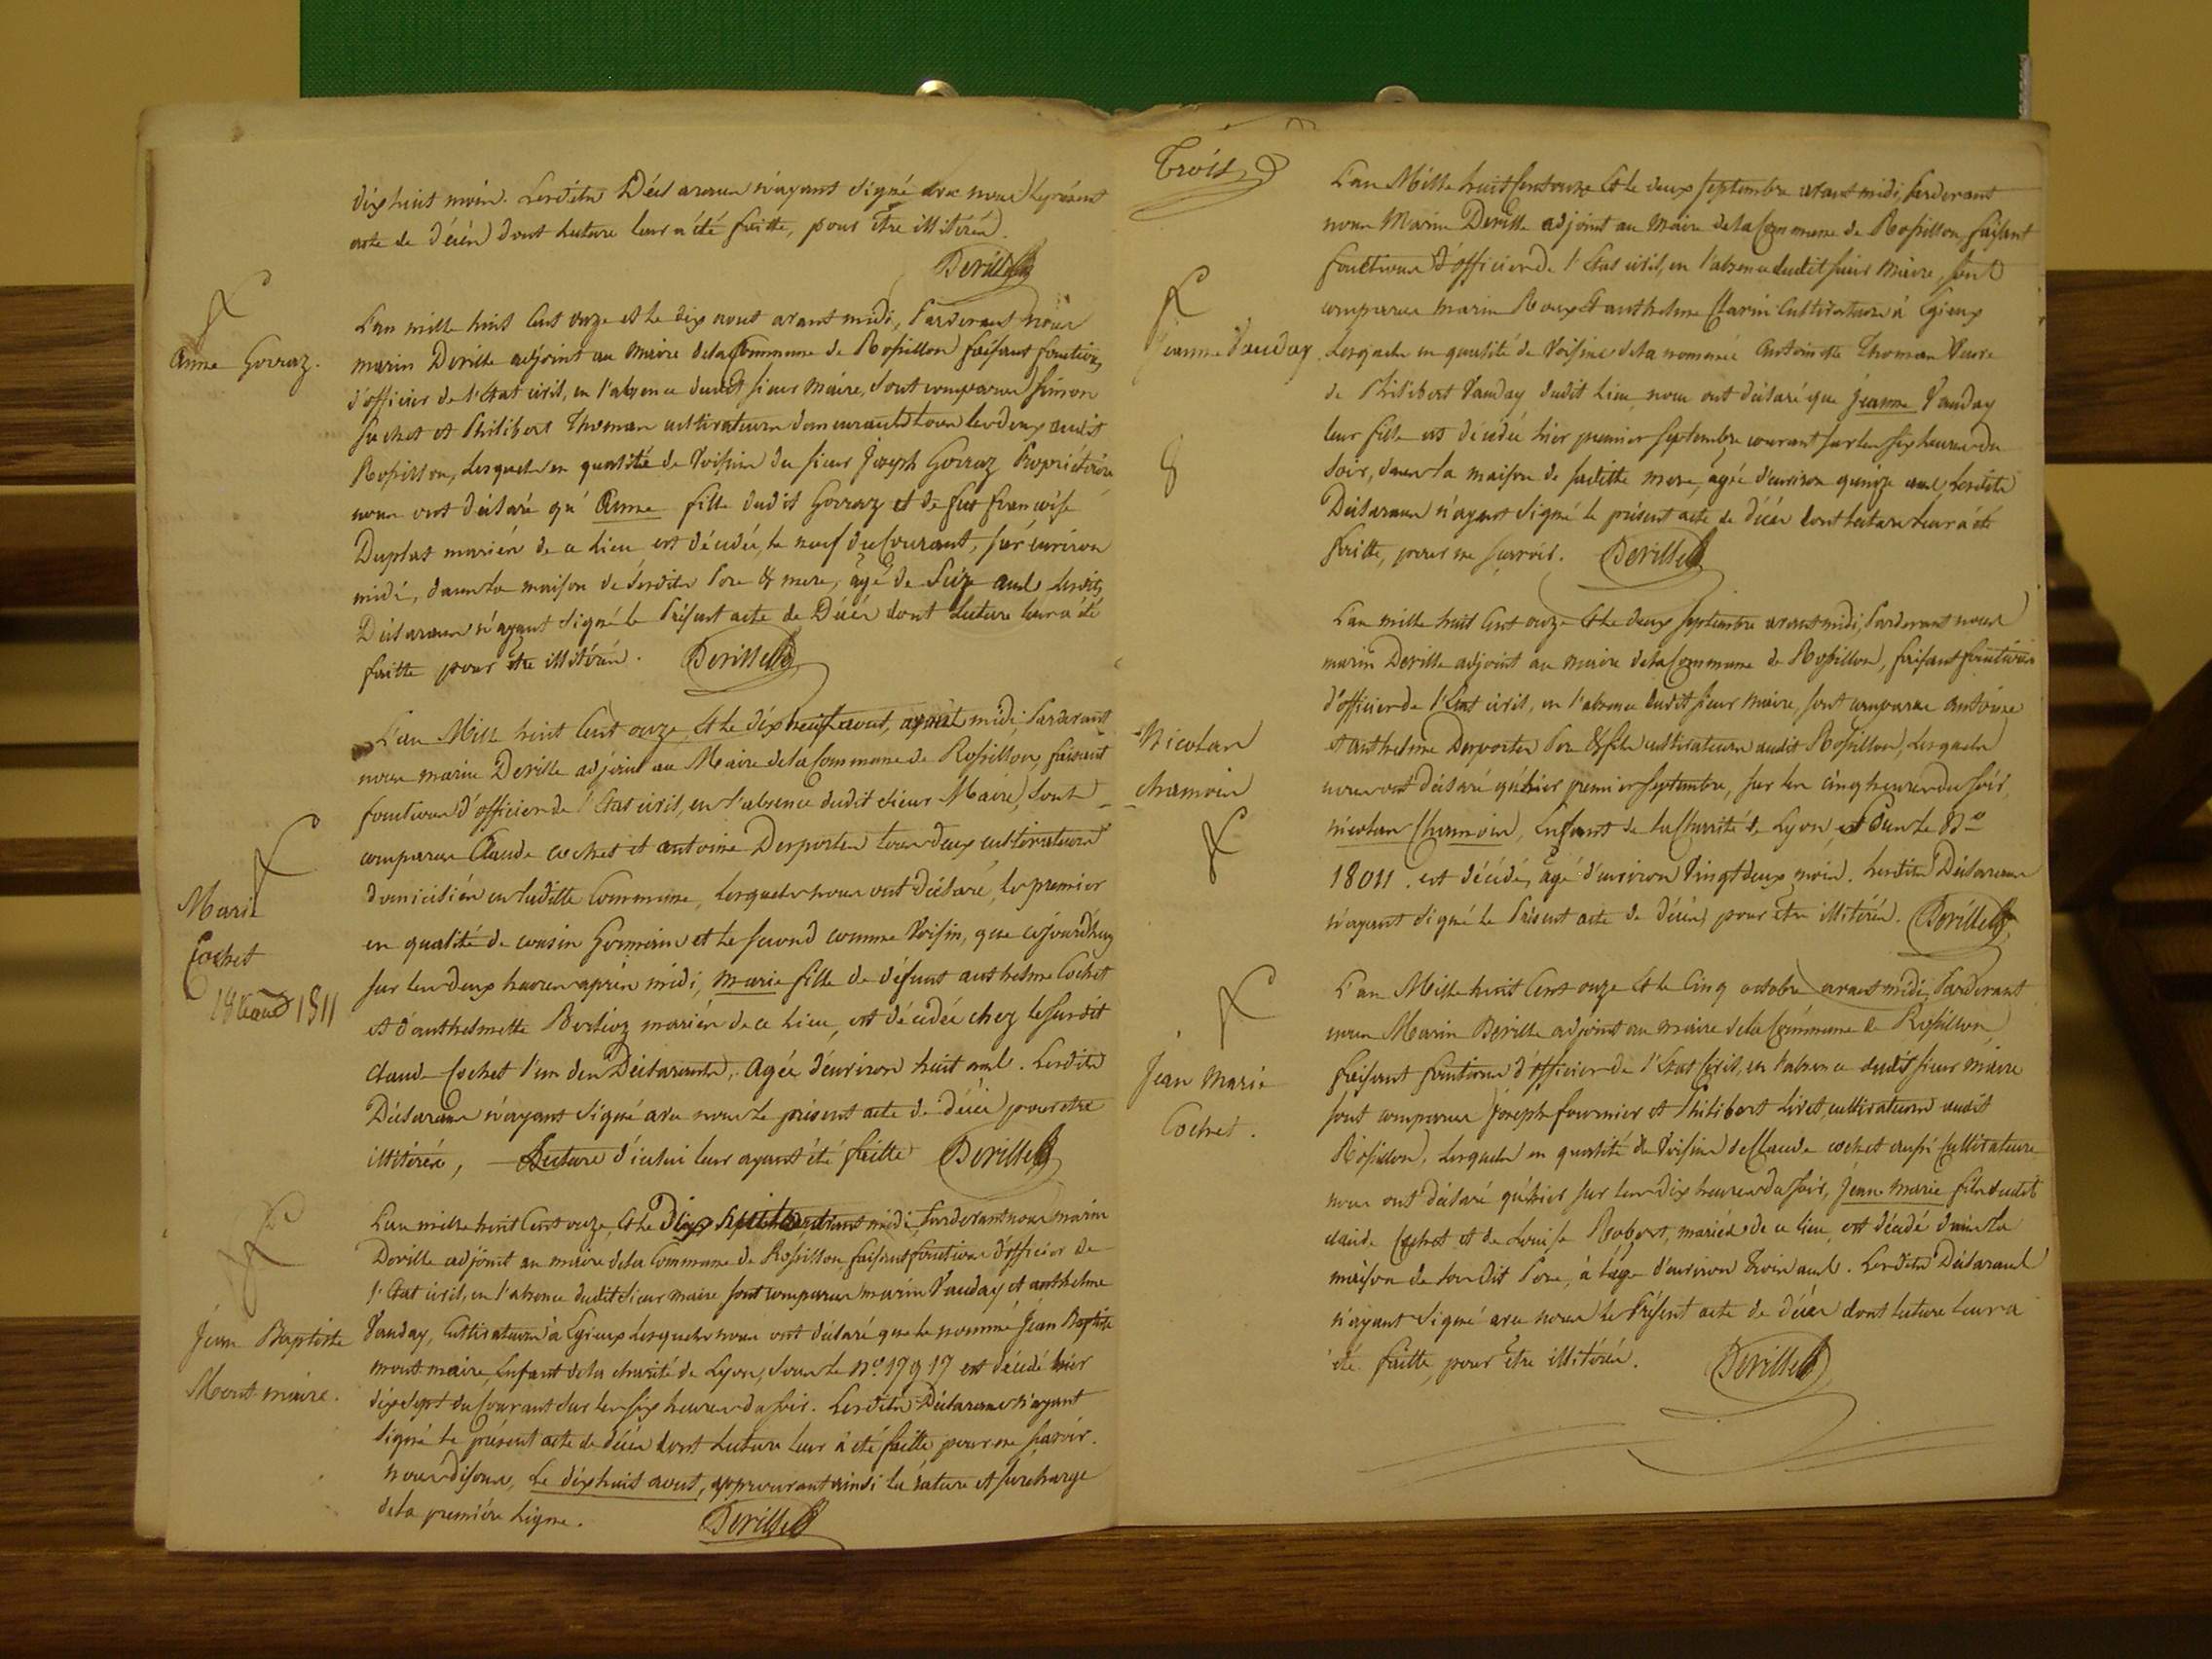 dix huit mois. Lesdits Déclarans n'ayant signé avec nous le présent
acte de décès dont lecture leur a été faitte, pour être illitérés.
Deville
Anne Gorraz.
L'an mille huit Cent onze et le dix aout avant midi, Pardevant nous
marin Deville adjoint au maire de la Commune de Rossillon faisant fonctions
d'officier de l'Etat civil, en l'absence dudit sieur maire, sont comparus Simon
Cochet et Philibert Thoman cultivateurs demeurants tous les deux audit
Rossillon, lesquels en qualité de voisins du sieur Joseph Gorraz Propriétaire
nous ont déclaré qu'Anne fille dudit Gorraz et de feu francoise
Duplat mariés de ce lieu est décédée, le neuf du Courant, sur environ
midi, dans la maison de sesdits Pere & mere, agé de Seize ans Lesdits
Déclarans n'ayant signé le Présent acte de Décès dont lecture leur a été
faitte pour être illitérés. Deville
Marie
Cochet
18 aout 1811
L'an Mille huit Cent onze, et le dix huit aout, après midi, Pardevant
nous marin Deville adjoint au Maire de la Commune de Rossillon, faisant
fonctions d'officier de l'Etat civil, en l'absence dudit sieur Maire, sont
comparus Claude cochet et antoine Desportes tous deux cultivateurs
domiciliés en laditte Commune, lesquels nous ont déclaré, le premier
en qualité de cousin Germain et le second comme voisin, que cejourd'huy
sur les deux heures après midi, marie fille de défunt anthelme Cochet
et d'anthelmette Berlioz mariés de ce lieu, est décédée chez le susdit
Claude Cochet l'un des Déclarants, Agée d'environ huit ans. Lesdits
Déclarans n'ayant signé avec nous le présent acte de décès pour etre
illitérés, Lecture d'icelui leur ayant été faitte Deville
Jean Baptiste
Mont maire.
L'an mille huit Cent onze, et le Dix huit avant midi, Pardevant nous marin
Deville adjoint au maire de la Commune de Rossillon faisant fonctions d'officier de
l'Etat civil, en l'absence dudit sieur maire sont comparus marin Vauday et anthelme
Vauday, Cultivateurs à Egieux lesquels nous ont déclaré que le nommé Jean Baptiste
mont maire, Enfant de la charité de Lyon, sous le n.º 17917 est décédé hier
dix sept du Courant sur les six heures du soir. Lesdits Déclarans n'ayant
signé le présent acte de décès dont lecture leur a été faitte pour ne savoir.
nous disons, le dix huit aout, approuvant ainsi la rature et surcharge
de la premiére ligne. Deville
Trois
Jeanne Vauday
8
L'an Mille huit Cent onze et le deux septembre avant midi, Pardevant
nous Marin Deville adjoint au Maire de la Commune de Rossillon, faisant
fonctions d'officier de l'Etat civil, en l'absence dudit sieur Maire, sont
comparus marin Roux et anthelme Clavin Cultivateurs à Egieux
Lesquels en qualité de voisins de la nommée Antoinette Thoman Veuve
de Philibert Vauday dudit lieu, nous ont déclaré que Jeanne Vauday
leur fille est décédée hier premier septembre courant sur les six heures du
soir, dans la maison de saditte mere, agée d'environ quinze ans Lesdits
Déclarans n'ayant signé le présent acte de décès dont lecture leur a été
faitte, pour ne savoir. Deville
Nicolas
chamoin
L'an mille huit Cent onze et le deux septembre avant midi, Pardevant nous
marin Deville adjoint au maire de la Commune de Rossillon, faisant fonctions
d'officier de l'Etat civil, en l'absence dudit sieur maire, sont comparus antoine
et anthelme Desportes Pere & fils cultivateurs audit Rossillon, lesquels
nous ont déclaré qu'hier premier septembre, sur les cinq heures du soir,
nicolas Chamoin, Enfant de la Charité de Lyon, sous le No
18011. est décédé, agé d'environ vingt deux mois. Lesdits Déclarans
n'ayant signé le Présent acte de décès, pour être illitérés. Deville
Jean Marie
Cochet.
L'an Mille huit Cent onze et le Cinq octobre avant midi, Pardevant
nous Marin Deville adjoint au maire de la Commune de Rossillon,
faisant fonctions d'officier de l'Etat Civil, en l'absence dudit sieur maire
sont comparus Joseph fournier et Philibert Livet, cultivateurs audit
Rossillon, lesquels en qualité de voisins de Claude cochet aussi Cultivateur
nous ont déclaré qu'hier sur les dix heures du soir, Jean marie fils dudit
claude Cochet et de Louise Robert, mariés de ce lieu, est décédé dans la
maison de son dit Pere, à l'age d'environ trois ans. Lesdits Déclarans
n'ayant signé avec nous le Présent acte de décès dont lecture leur a
été faitte, pour être illitérés. Deville